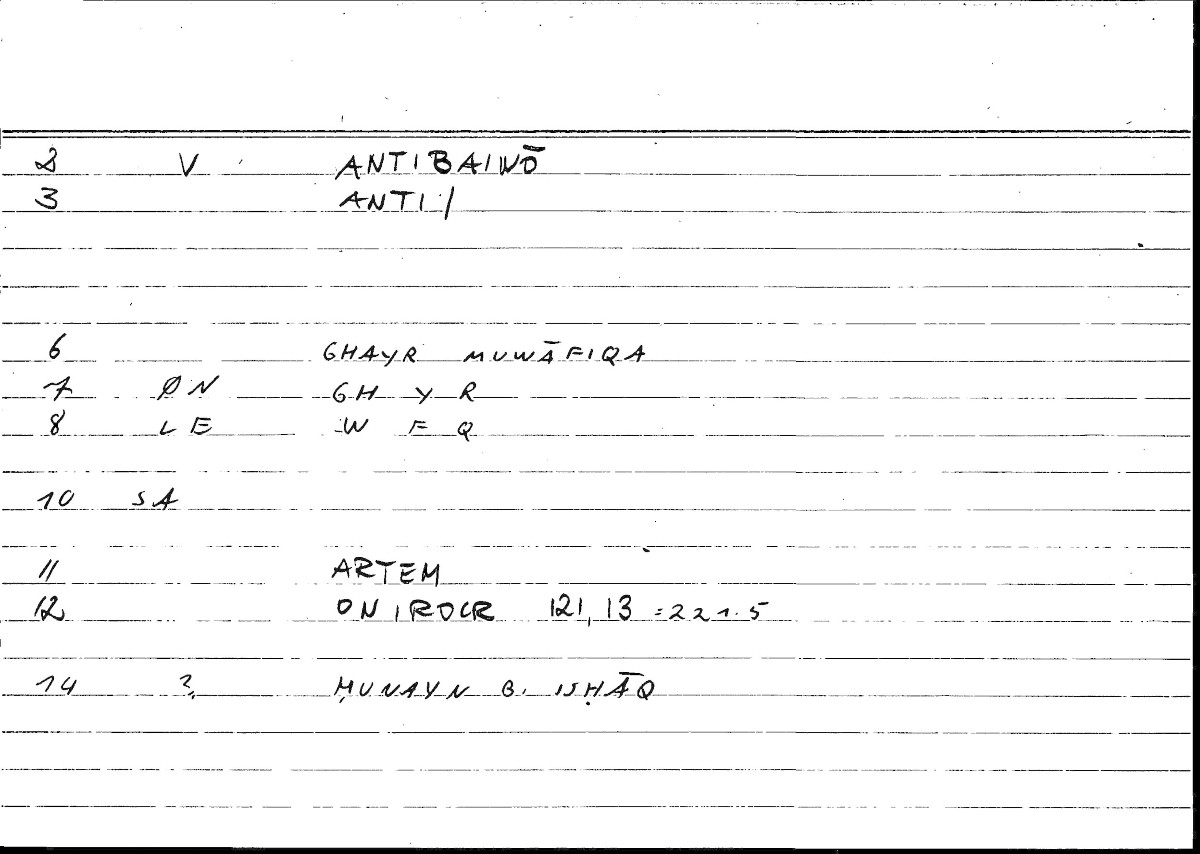 2 V ANTIBAINŌ
3 ANTI/
6 GHAYR MUWĀFIQA
7 ØN GH Y R
8 LE W F Q
10 SA
11 ARTEM
12 ONIROCR 121,13 =221.5
14 ? ḤUNAYN B. ISḤĀQ